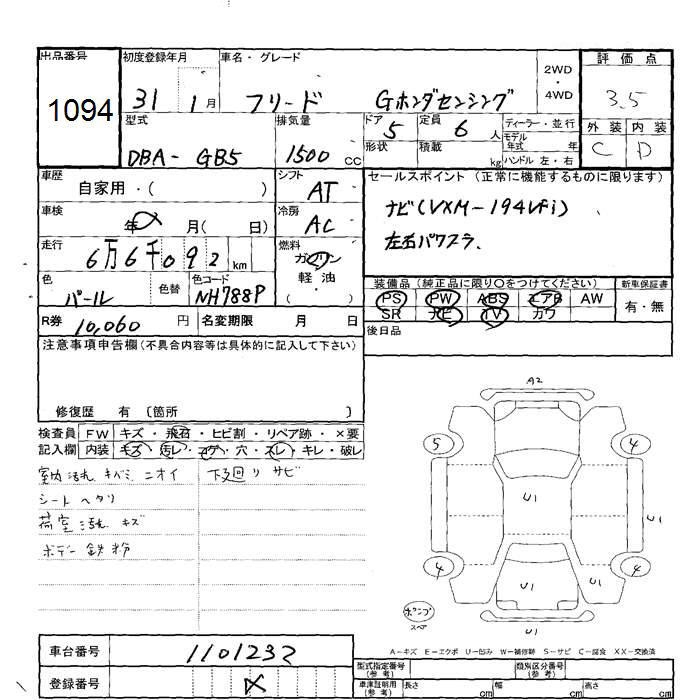 出品番号 初度登録年月 車名・グレード 評価点
1094 31 1月 フリード Gホンダセンシング 2WD 3.5
4WD
型式 排気量 ドア 定員 ディーラー・並行 外装 内装
DBA-GB5 1500cc 5 6人 モデル年式 年 C D
形状 積載 kg ハンドル 左・右
車歴 自家用・( ) シフト AT セールスポイント(正常に機能するものに限ります)
車検 年 月( 日) 冷房 AC ナビ(VXM-194VFi)
走行 6万6千092km 燃料 ガソリン 左右パワスラ
軽油・( )
色 パール 色替 色コード NH788P 装備品(純正品に限り○をつけてください) 新車保証書
PS PW ABS エアB AW 有・無
R券 10,060円 名変期限 月 日 SR ナビ TV カワ
注意事項申告欄(不具合内容等は具体的に記入して下さい) 後日品
修復歴 有 〔箇所 〕
A2
検査員 FW キズ・飛石・ヒビ割・リペア跡・×要
記入欄 内装 キズ・汚レ・コゲ・穴・スレ・キレ・破レ
5 4
室内汚れ キバミ ニオイ 下廻りサビ
シートヘタリ U1
荷室汚れ キズ U1
ボデー鉄粉
4 4
U1 U1
ポンプ
スペア
U1
車台番号 1101232 A-キズ E-エクボ U-凹み W-補修跡 S-サビ C-腐食 XX-交換済
登録番号 型式指定番号(参考) 類別区分番号(参考)
車庫証明用(参考) 長さ cm 幅 cm 高さ cm